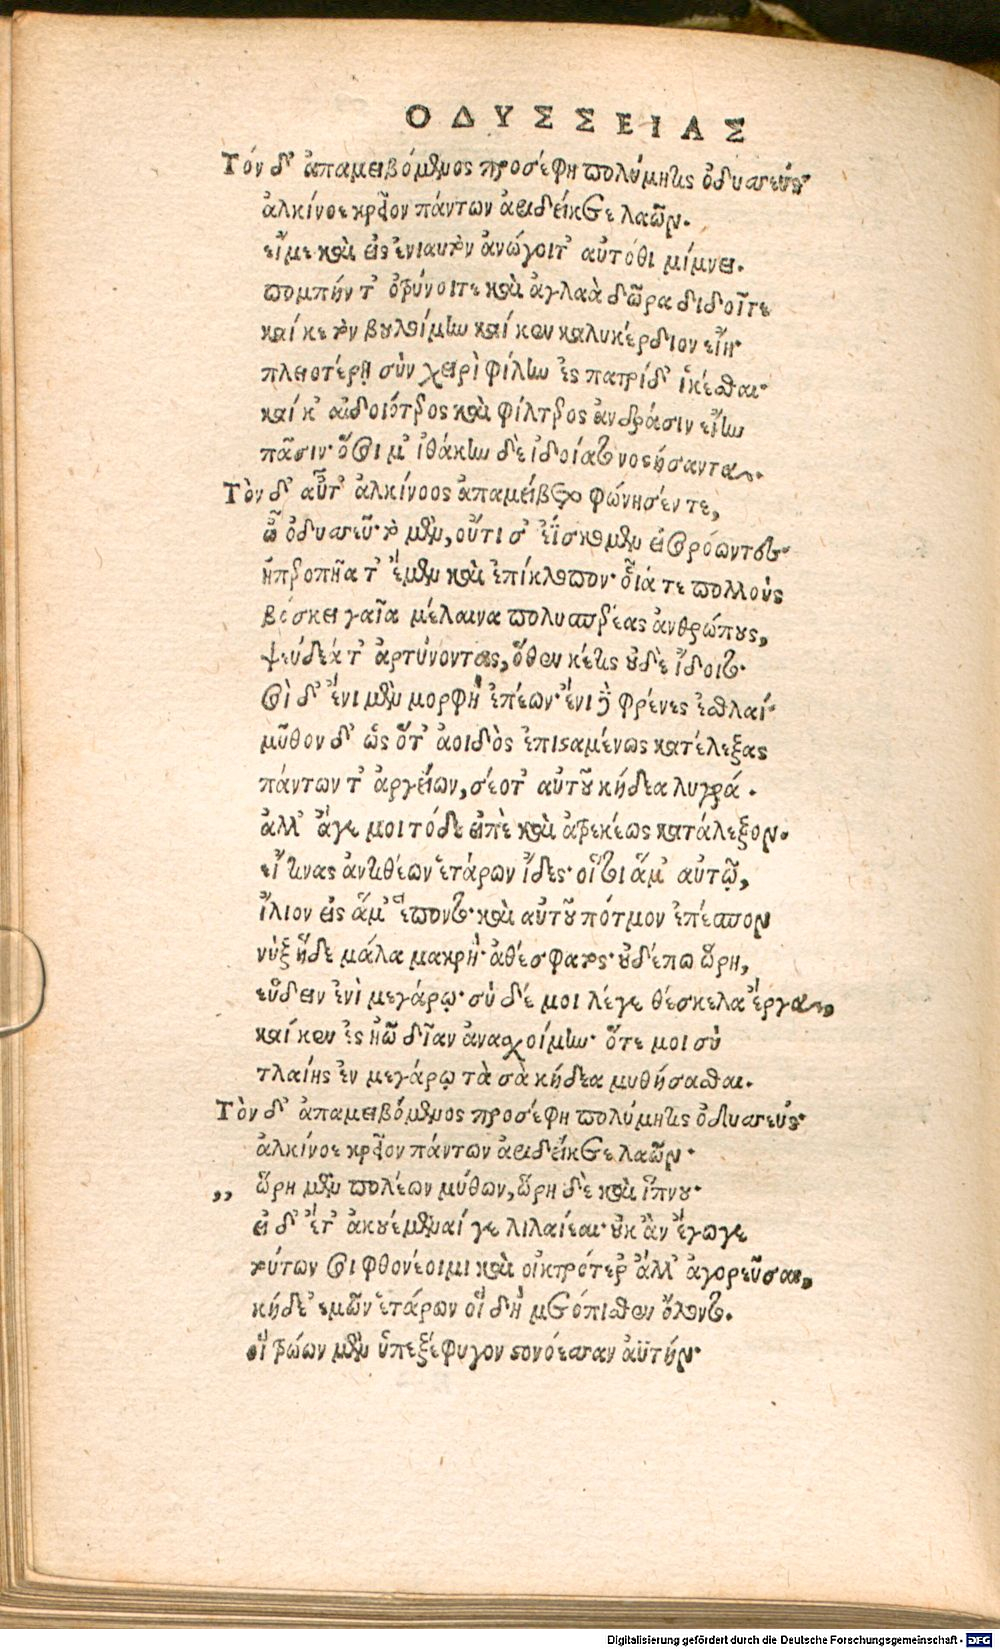 ΟΔΥΣΣΕΙΑΣ
Τόν δ' ἀπαμειβόμενος προσέφη πολύμητις ὀδυσσεύς·
ἀλκίνοε κρεῖον πάντων ἀριδείκετε λαῶν.
εἴ με καὶ εἰς ἐνιαυτὸν ἀνώγοιτ' αὐτόθι μίμνειν.
πομπήν τ' ὀτρύνοιτε καὶ ἀγλαὰ δῶρα διδοῖτε
καί κε τὸν βουλοίμην καί κεν καλυκέρδιον εἴη·
πλειοτέρῃ σὺν χειρὶ φίλην ἐς πατρίδ' ἱκέσθαι·
καί κ' αἰδοιότερος καὶ φίλτερος ἀνδράσιν εἴην
πᾶσιν· ὅσοι μ' ἰθάκην δὲ ἰδοίατο νοστήσαντα.
Τὸν δ' αὖτ' ἀλκίνοος ἀπαμείβετο φώνησέν τε,
ὦ ὀδυσσεῦ· τὸ μὲν, οὔτι σ' ἐΐσκομεν εἰσορόωντες·
ἠπεροπῆα τ' ἔμεν καὶ ἐπίκλοπον· οἷά τε πολλοὺς
βόσκει γαῖα μέλαινα πολυσπερέας ἀνθρώπους,
ψεύδεά τ' ἀρτύνοντας, ὅθεν κέ τις οὐδὲ ἴδοιτο·
σοὶ δ' ἔνι μὲν μορφὴ ἐπέων· ἔνι δὲ φρένες ἐσθλαί·
μῦθον δ' ὡς ὅτ' ἀοιδὸς ἐπισταμένως κατέλεξας
πάντων τ' ἀργείων, σέοτ' αὐτοῦ κήδεα λυγρά.
ἀλλ' ἄγε μοι τόδε εἰπὲ καὶ ἀτρεκέως κατάλεξον.
εἴ τινας ἀντιθέων ἑτάρων ἴδες· οἵ τοι ἅμ' αὐτῷ,
ἴλιον εἰς ἅμ' ἕποντο· καὶ αὐτοῦ πότμον ἐπέσπον
νὺξ ἥδε μάλα μακρή· ἀθέσφατος· οὐδέπω ὥρη,
εὕδειν ἐνὶ μεγάρῳ· σὺ δέ μοι λέγε θέσκελα ἔργα,
καί κεν ἐς ἠῶ δῖαν ἀνασχοίμην· ὅτε μοι σὺ
τλαίης ἐν μεγάρῳ τὰ σὰ κήδεα μυθήσασθαι.
Τὸν δ' ἀπαμειβόμενος προσέφη πολύμητις ὀδυσσεύς·
ἀλκίνοε κρεῖον πάντων ἀριδείκετε λαῶν·
,, ὥρη μὲν πολέων μύθων, ὥρη δὲ καὶ ὕπνου·
εἰ δ' ἔτ' ἀκουέμεναί γε λιλαίεαι· οὐκ ἂν ἔγωγε
τούτων σοι φθονέοιμι καὶ οἰκτρότερ' ἄλλ' ἀγορεῦσαι,
κήδε' ἐμῶν ἑτάρων οἳ δὴ μετόπισθεν ὄλοντο.
οἳ τρώων μὲν ὑπεξέφυγον στονόεσσαν ἀϋτήν·
Digitalisierung gefördert durch die Deutsche Forschungsgemeinschaft - DFG